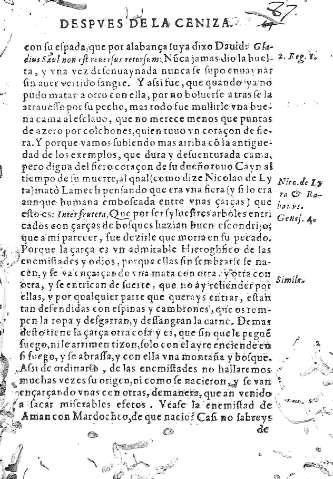 DESPVES DE LA CENIZA. 87
con su espada, que por alabança suya dixo Dauid: Gla
dius Saul non est reuersus retorsum: Nũca jamas dio la buel
ta, y vna vez desenuaynada nunca se supo enuaynar
sin auer vertido sangre. Y assi fue, que quando ya no
pudo matar a otro con ella, por no boluerse atras se la
atrauessò por su pecho, mas todo fue mullirle vna bue
na cama al esclauo, que no merece menos que puntas
de azero por colchones, quien touo vn coraçon de fie
ra. Y porque vamos subiendo mas arriba cõ la antigue-
dad de los exemplos, que dura y desuenturada cama,
pero digna del fiero coraçon de su dueño touo Cayn al
tiempo de su muerte, al qual (como dize Nicolao de Ly
ra) matò Lamech pensando que era vna fiera (y si lo era
aunque humana emboscada entre vnas çarças) que
esto es: Inter fruteta. Que por ser syluestres arboles entri
cados con çarças de bosques hazian buen escondrijo;
que a mi parecer, fue dezirle que moria en su pecado.
Porque la çarça es vn admirable Hieroglifico de las
enemistades y odios, porque ellas sin sembrarse se na-
cen, y se va ençarçando vna mata con otra, y otra con
otra, y se entrican de suerte, que no ay
ellas, y por qualquier parte que querays entrar, estan
tan defendidas con espinas y cambrones, que os rom-
pen la ropa y desgarran, y dessangran la carne. Demas
desto tiene la çarça otra cosa y es, que sin que le pegue
fuego, ni le arrimen tizon, solo con el ayre enciende en
si fuego, y se abrassa, y con ella vna montaña y bosque.
Assi de ordinario, de las enemistades no hallaremos
muchas vezes su origen, ni como se nacieron, y se van
ençarçando vnas con otras, de manera, que an venido
a sacar miserables efetos. Vease la enemistad de
Aman con Mardocheo, de que nacio? Casi no sabreys
de
2. Reg. 1.
Nico. de Ly
ra & Ra-
banus.
Genes. 4.
Simile.